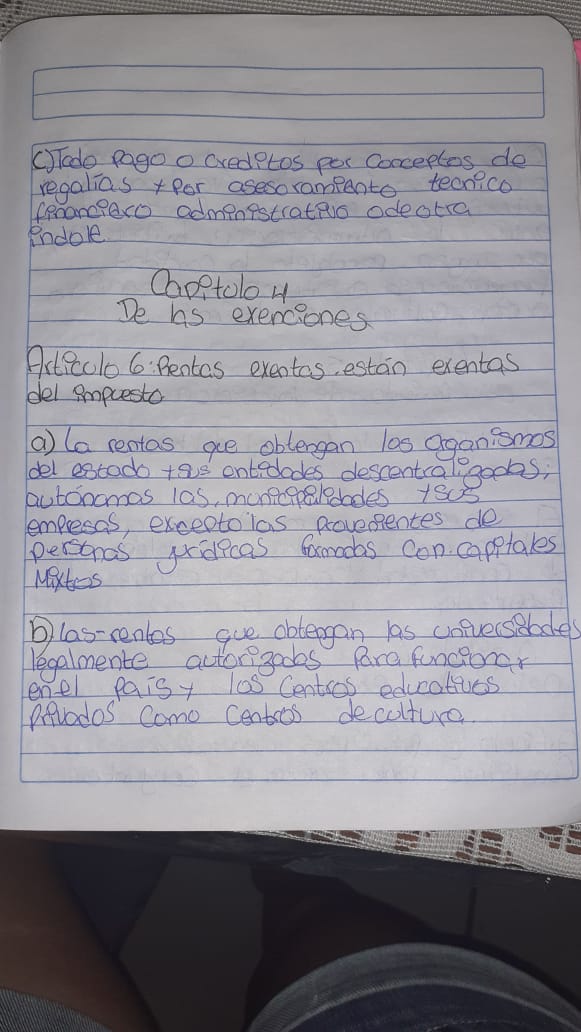 c) Todo pago o creditos por conceptos de
regalías y por asesoramiento tecnico
financiero administrativo o de otra
indole.
Capitulo 4
De las exenciones
Articulo 6: Rentas exentas. están exentas
del impuesto
a) La rentas que obtengan los Oganismos
del estado y sus entidades descentralizadas;
autónomas las, municipalidades y sus
empresas, excepto las provenientes de
personas jurídicas formadas con capitales
Mixtos
b) las-rentas que obtengan las universidades
legalmente autorizadas para funcionar
en el País y los Centros educativos
Privados Como Centros de cultura.